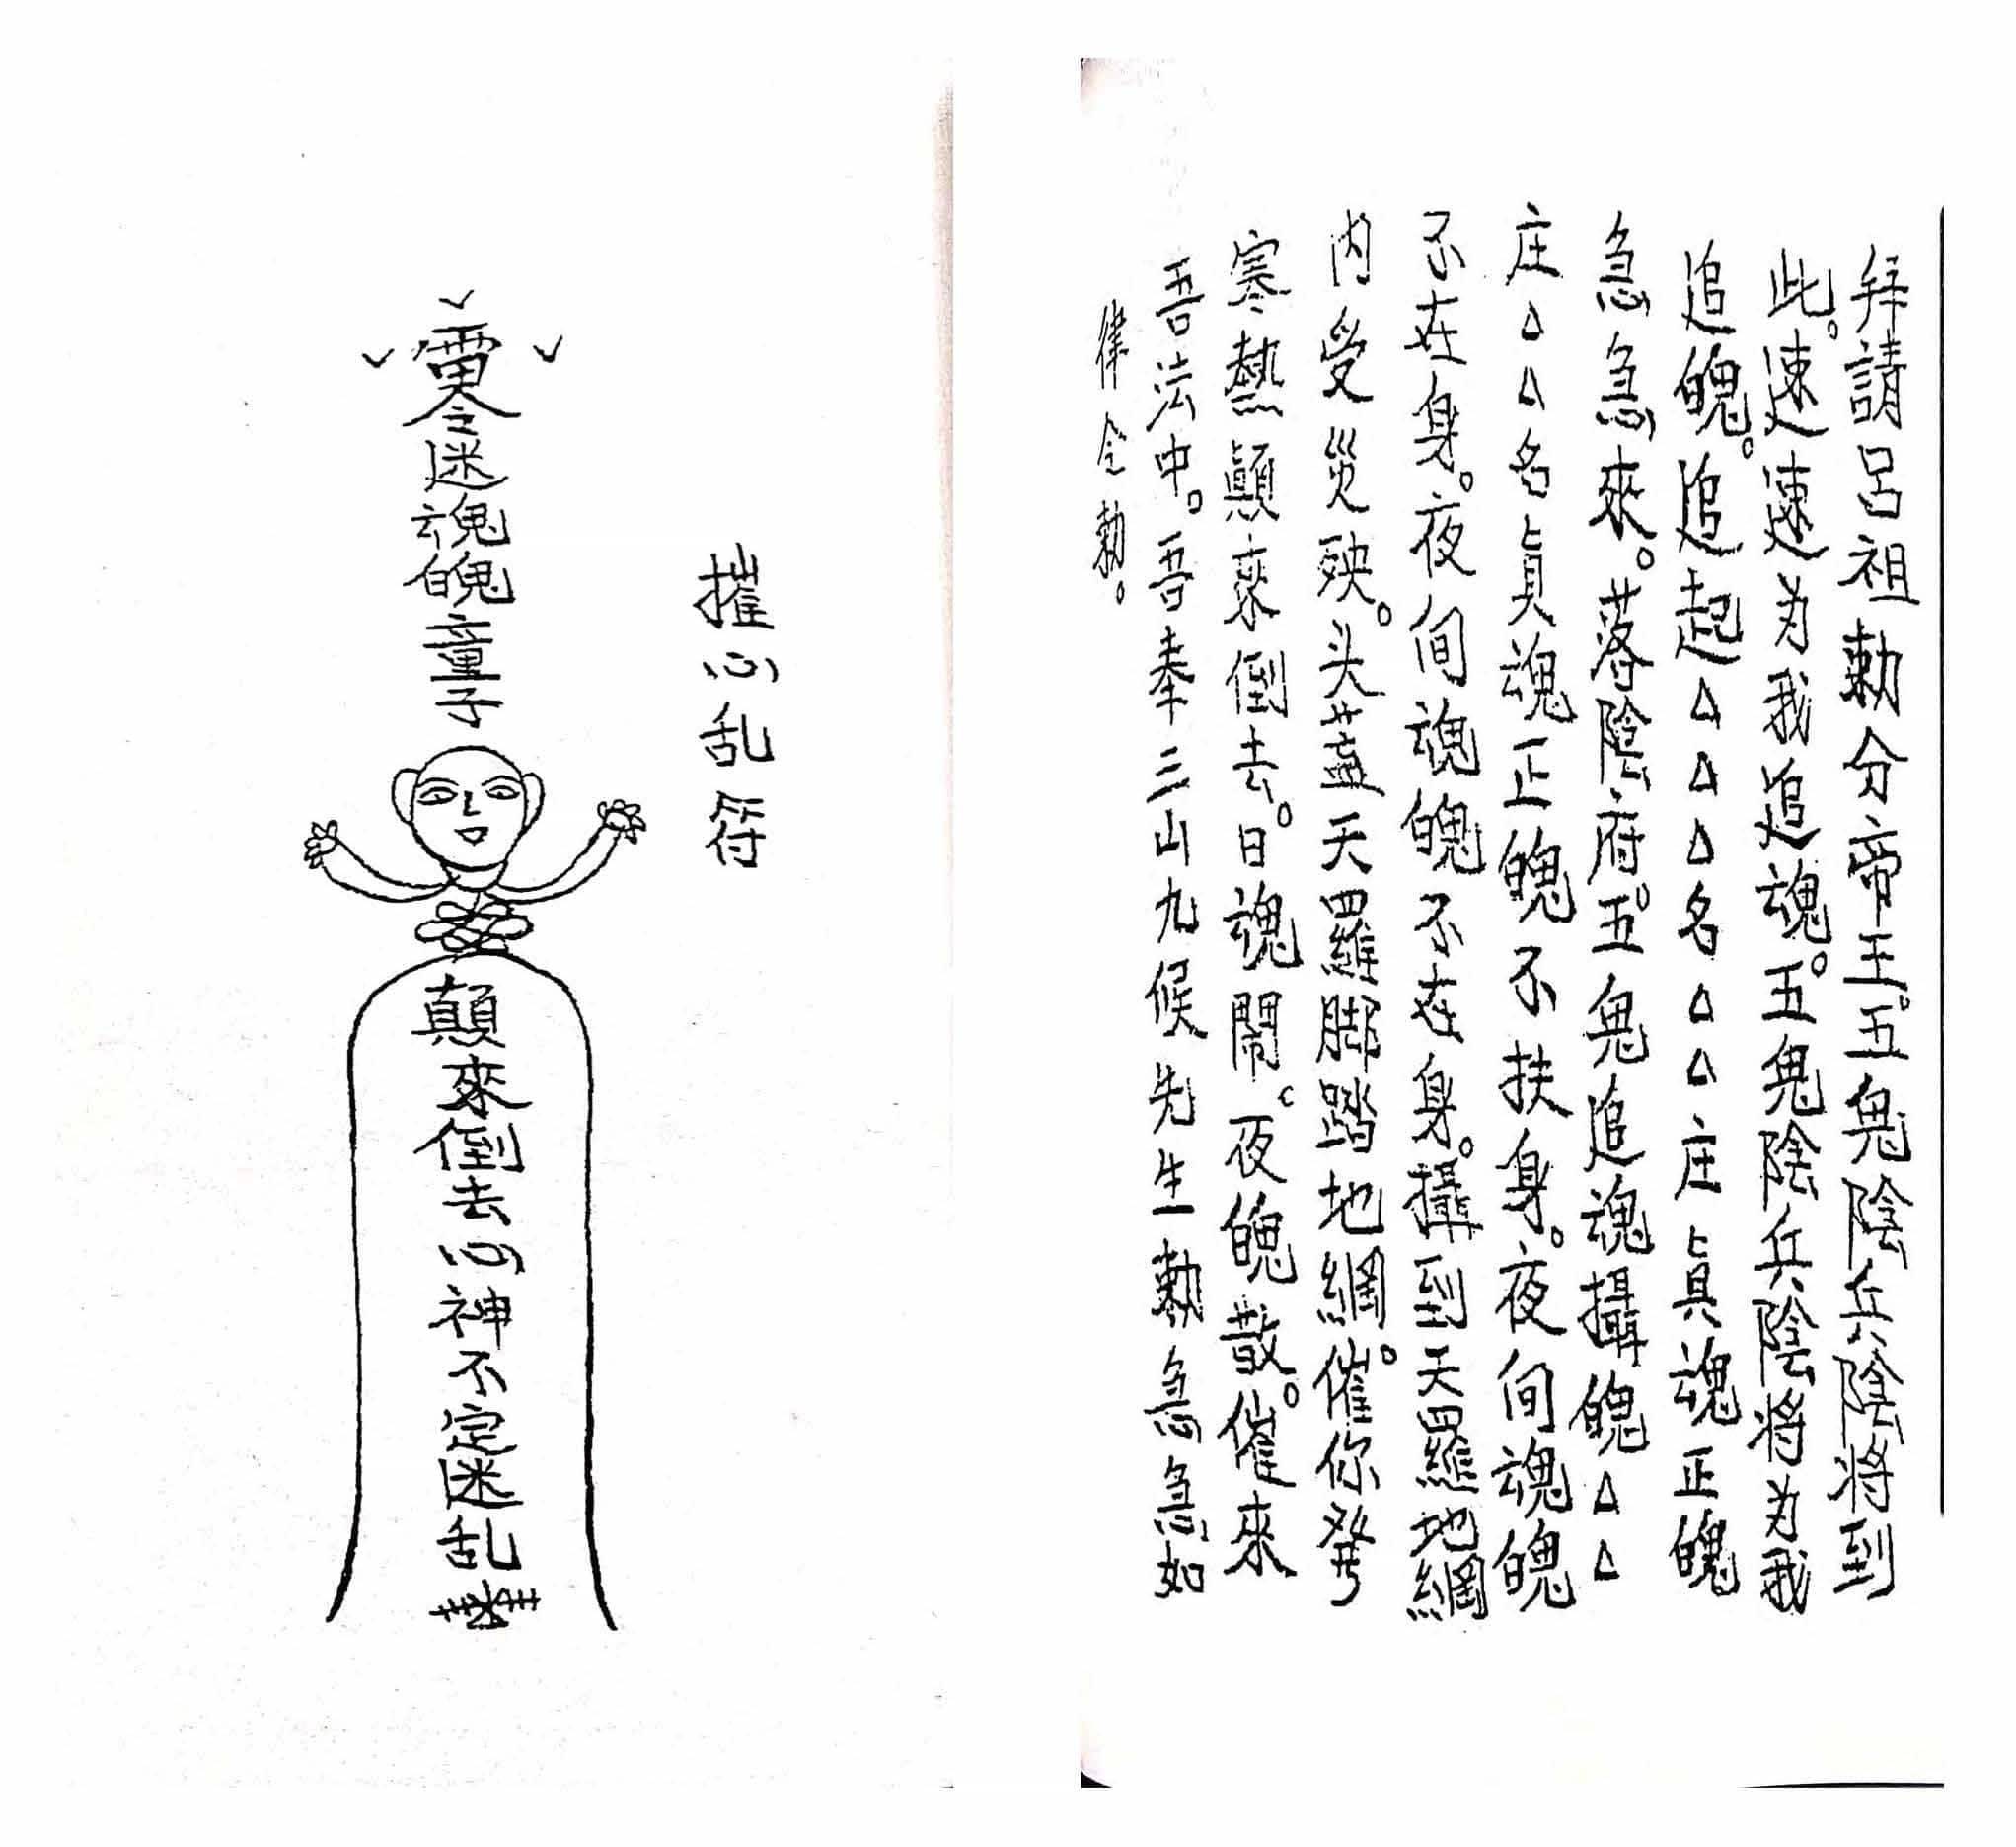 拜請呂祖勅分帝王。五鬼陰兵陰將到
此。速速为我追魂。五鬼陰兵陰將为我
追魄。追起△△△名△△庄眞魂正魄
急急來。落陰府。五鬼追魂攝魄△△△
庄△△名眞魂正魄不扶身。夜间魂魄
不在身。夜间魂魄不在身。攝到天羅地網
内受災殃。头蓋天羅脚踏地網。催你發
寒熱顛來倒去。日魂鬧。夜魄散。催來
吾法中。吾奉三山九候先生勅急急如
律令勅。
摧心乱符
雷令迷魂魄童子
顛來倒去心神不定迷乱